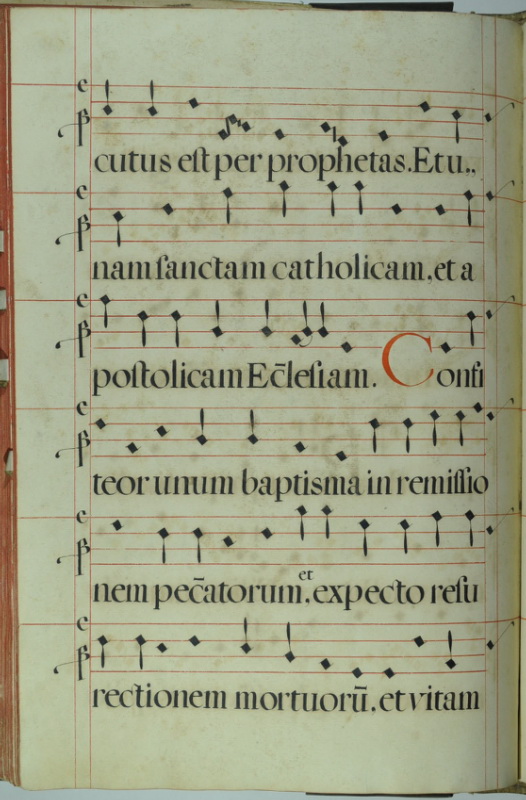 cutus est per prophetas. Et u.,
nam sanctam catholicam, et a
postolicam Ec̄lesiam. Confi
teor unum baptisma in remissio
nem pec̄atorum, et expecto resu
rectionem mortuorū, et vitam